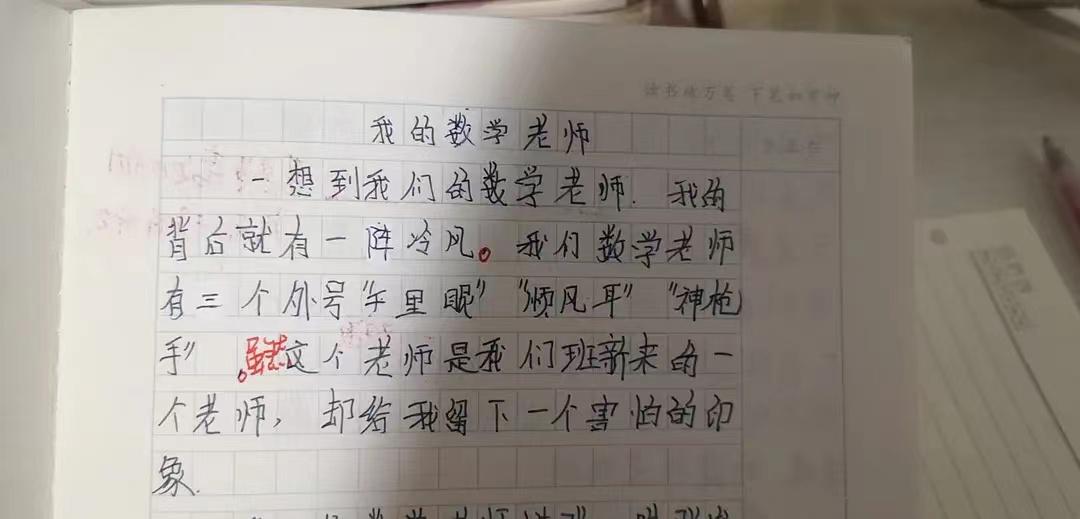 读书破万卷 下笔如有神
我的数学老师
一想到我们的数学老师.我的
背后就有一阵冷风。我们数学老师
有三个外号"千里眼""顺风耳""神枪
手"。虽然这个老师是我们班新来的一
个老师,却给我留下一个害怕的印
象.